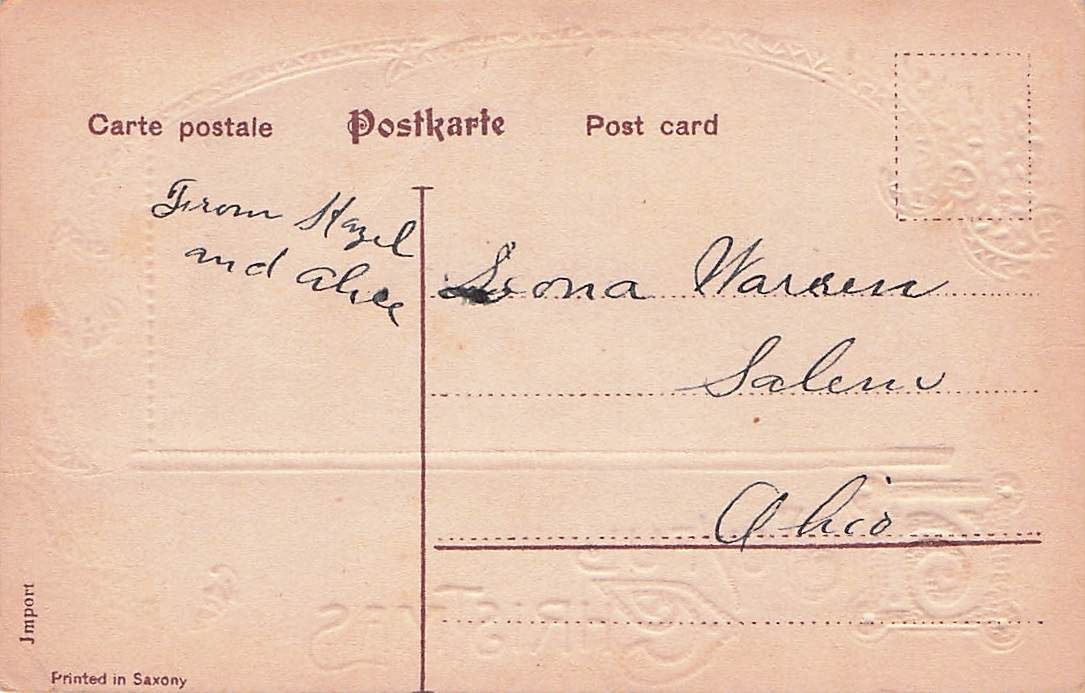 Carte postale Postkarte Post card
From Hazel
and Alice
Leona Warren
Salem
Ohio
Import
Printed in Saxony